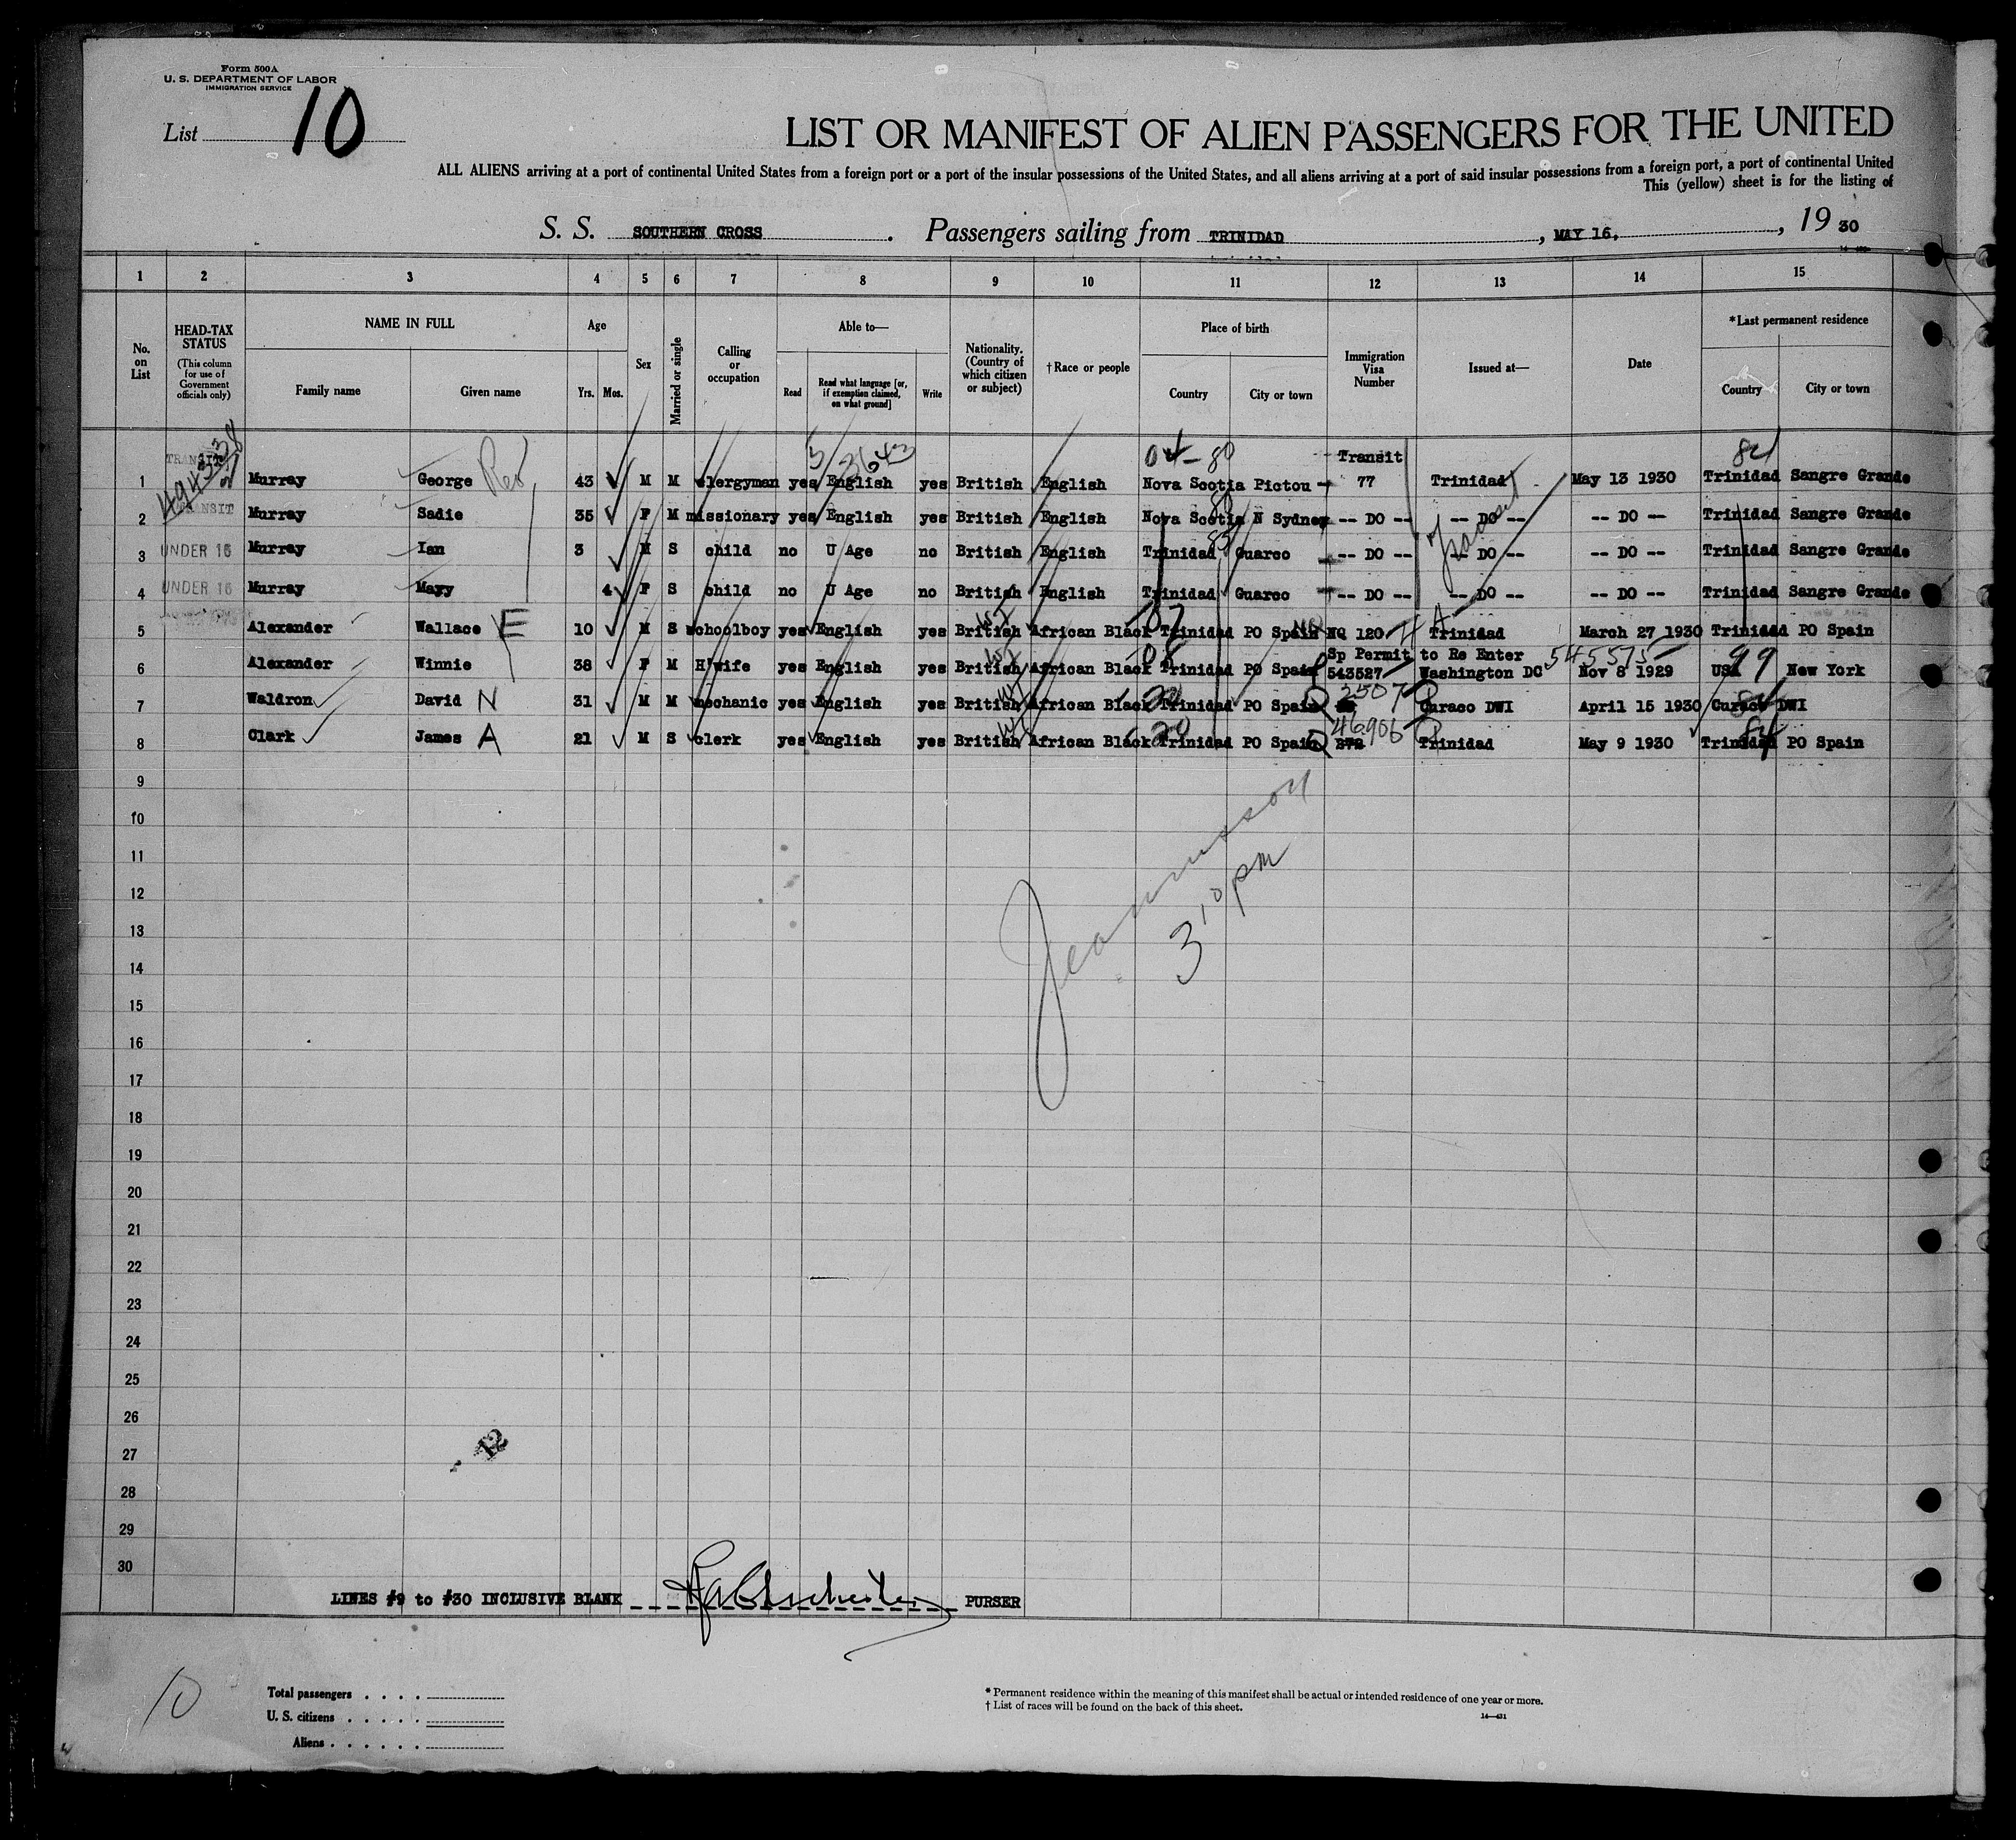 Form 500A
U. S. DEPARTMENT OF LABOR
IMMIGRATION SERVICE
List 10
LIST OR MANIFEST OF ALIEN PASSENGERS FOR THE UNITED
ALL ALIENS arriving at a port of continental United States from a foreign port or a port of the insular possessions of the United States, and all aliens arriving at a port of said insular possessions from a foreign port, a port of continental United
This (yellow) sheet is for the listing of
S. S. SOUTHERN CROSS. Passengers sailing from TRINIDAD, MAY 16, 1930
1 2 3 4 5 6 7 8 9 10 11 12 13 14 15
No. on List
HEAD-TAX STATUS
(This column for use of Government officials only)
NAME IN FULL
Family name Given name
Age
Yrs. Mos.
Sex
Married or single
Calling or occupation
Able to—
Read Read what language [or, if exemption claimed, on what ground] Write
Nationality. (Country of which citizen or subject)
†Race or people
Place of birth
Country City or town
Immigration Visa Number
Issued at—
Date
*Last permanent residence
Country City or town
5/3643 04-80 Transit 84
1 TRANSIT Murray George Rev 43 M M clergyman yes English yes British English Nova Scotia Pictou 77 Trinidad May 13 1930 Trinidad Sangre Grande
2 TRANSIT Murray Sadie 35 F M missionary yes English yes British English Nova Scotia N Sydney -- DO -- -- DO -- -- DO -- Trinidad Sangre Grande
3 UNDER 16 Murray Ian 3 M S child no U Age no British English Trinidad Guarco -- DO -- -- DO -- -- DO -- Trinidad Sangre Grande
4 UNDER 16 Murray Mayy 4 F S child no U Age no British English Trinidad Guarco -- DO -- -- DO -- -- DO -- Trinidad Sangre Grande
5 Alexander Wallace E 10 M S schoolboy yes English yes British African Black Trinidad PO Spain NQ 120 Trinidad March 27 1930 Trinidad PO Spain
Sp Permit to Re Enter 545575
6 Alexander Winnie 38 F M H'wife yes English yes British African Black Trinidad PO Spain 543527 Washington DC Nov 8 1929 USA 99 New York
7 Waldron David N 31 M M mechanic yes English yes British African Black Trinidad PO Spain 2507 Curaco DWI April 15 1930 Curaco DWI
46906
8 Clark James A 21 M S clerk yes English yes British African Black Trinidad PO Spain 272 Trinidad May 9 1930 Trinidad PO Spain
9
10
11
12
13
14
15
16
17
18
19
20
21
22
23
24
25
26
27
28
29
30
3 10 pm
12
LINES #9 to #30 INCLUSIVE BLANK PURSER
10
Total passengers
U. S. citizens
Aliens
* Permanent residence within the meaning of this manifest shall be actual or intended residence of one year or more.
† List of races will be found on the back of this sheet.
14—431